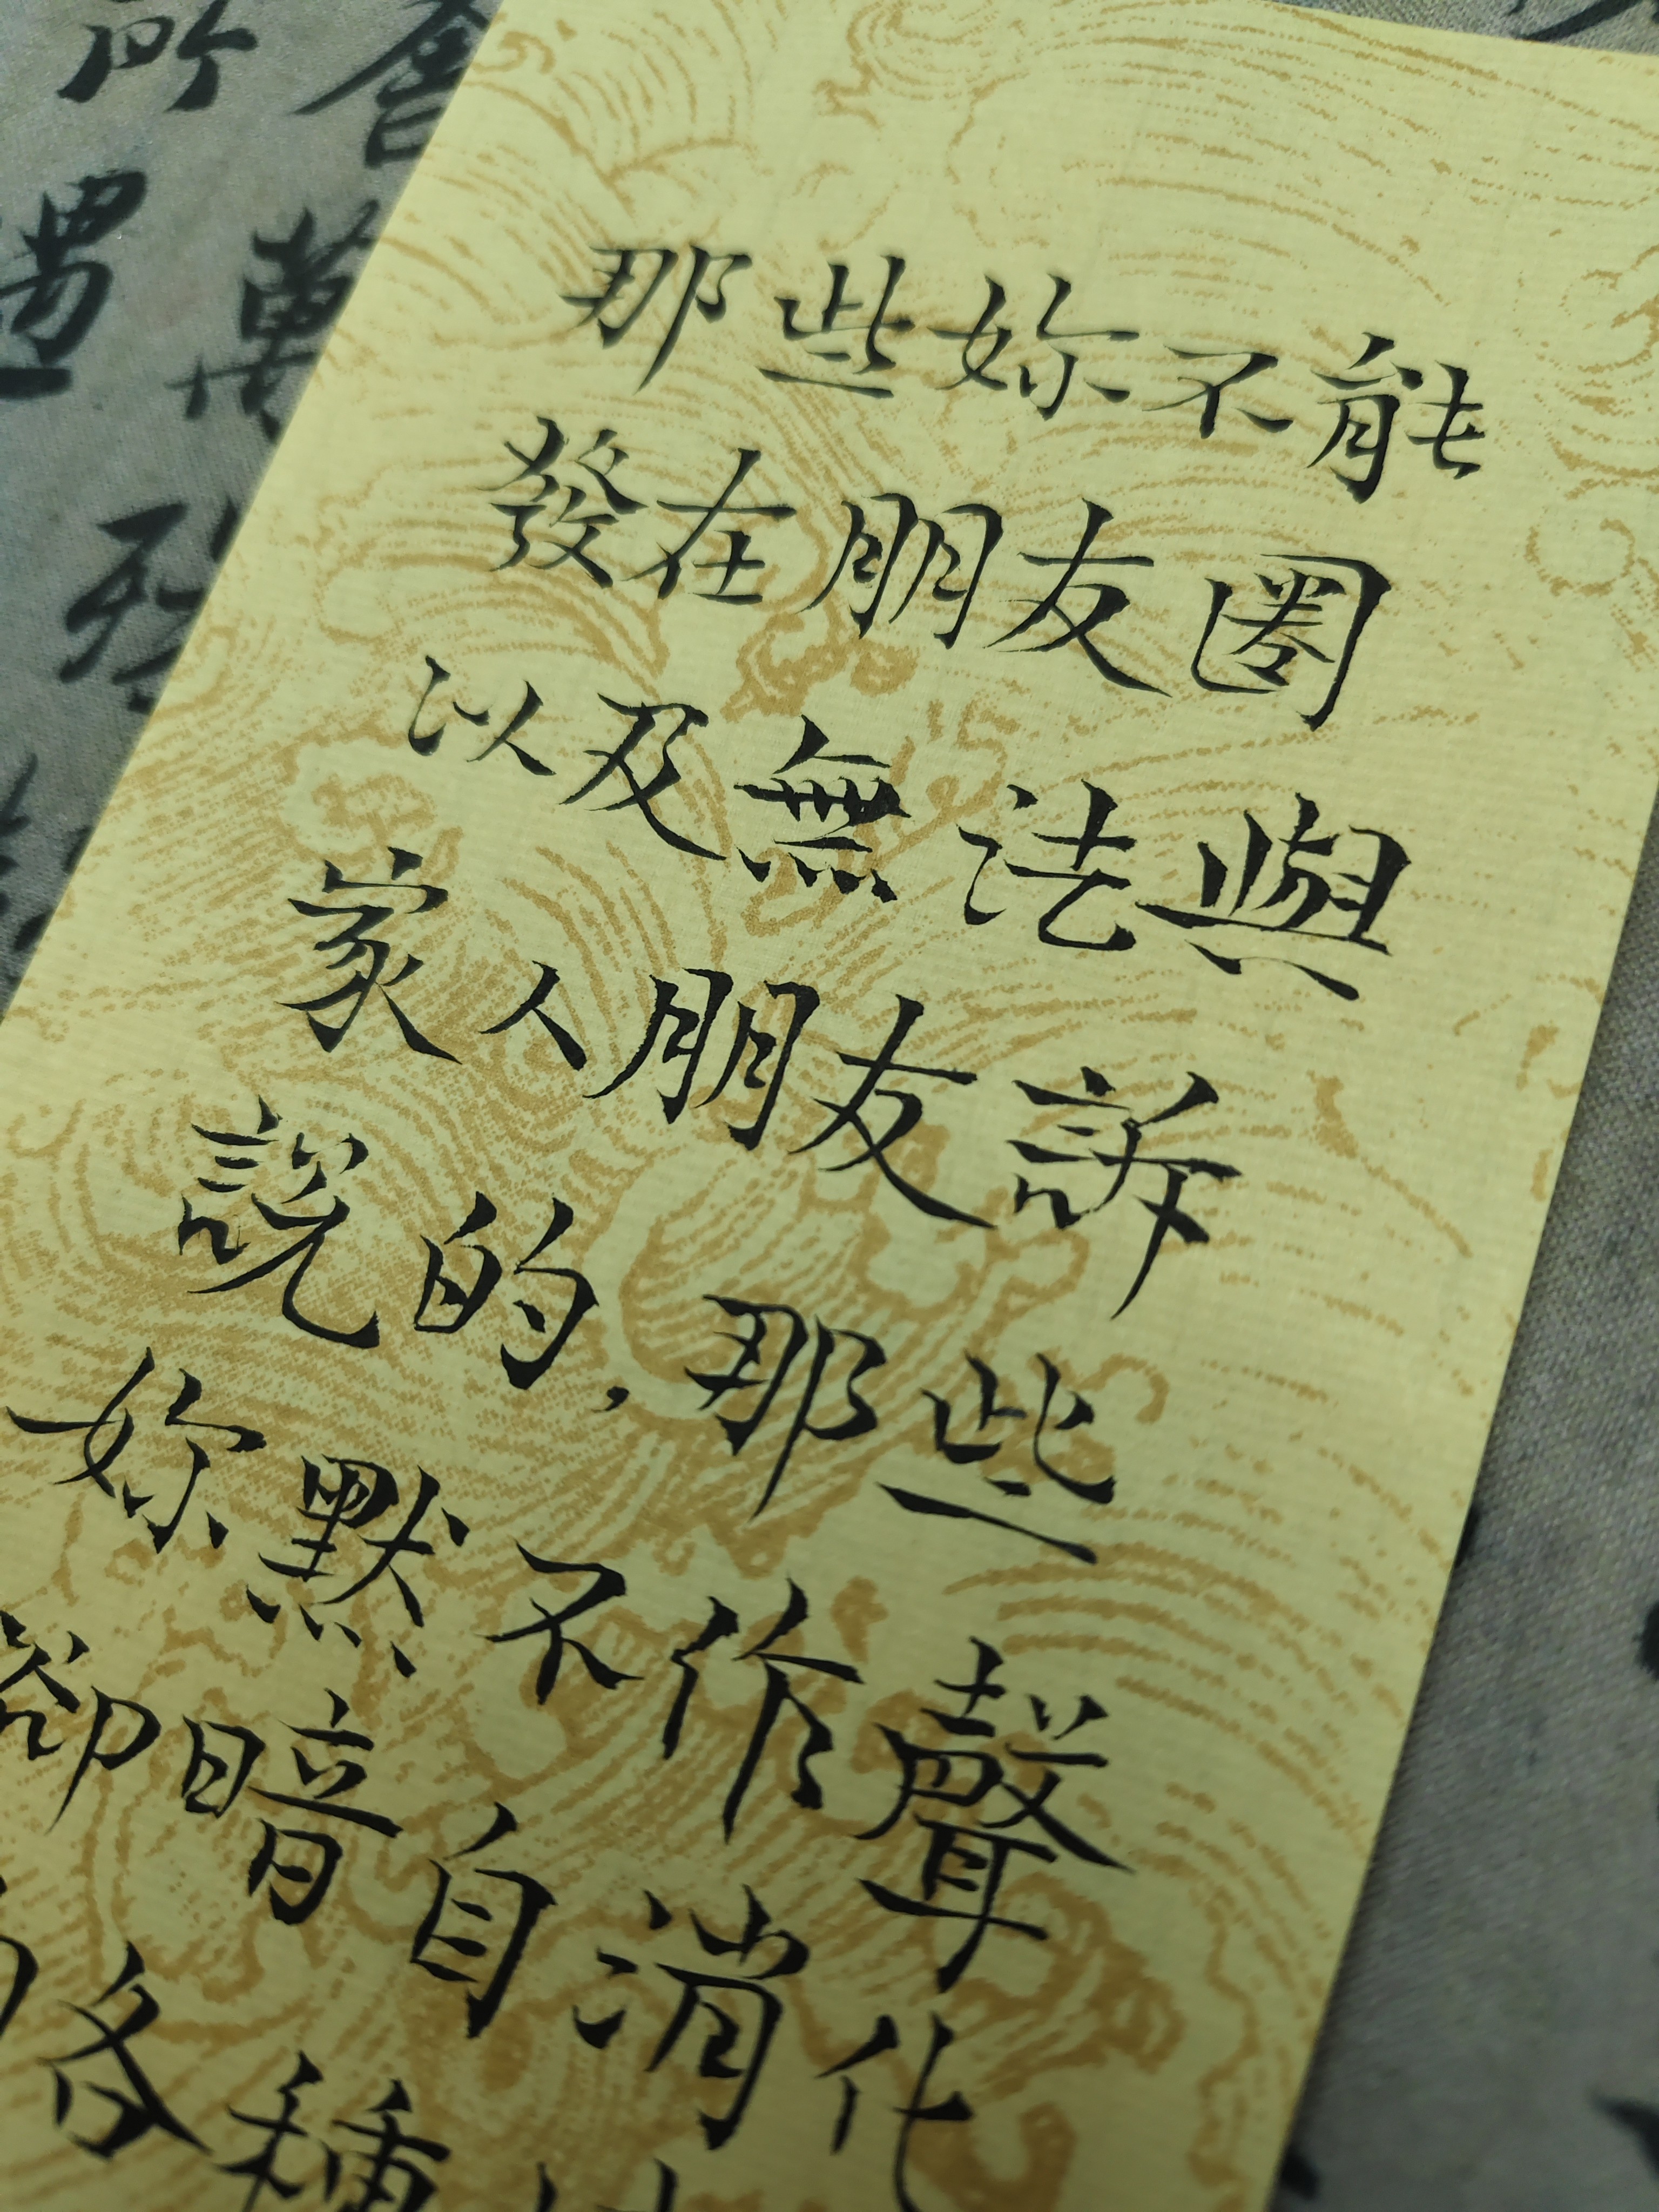 那些妳不能
發在朋友圈
以及無法與
家人朋友訴
說的,那些
妳默不作聲
卻暗自消化
各種